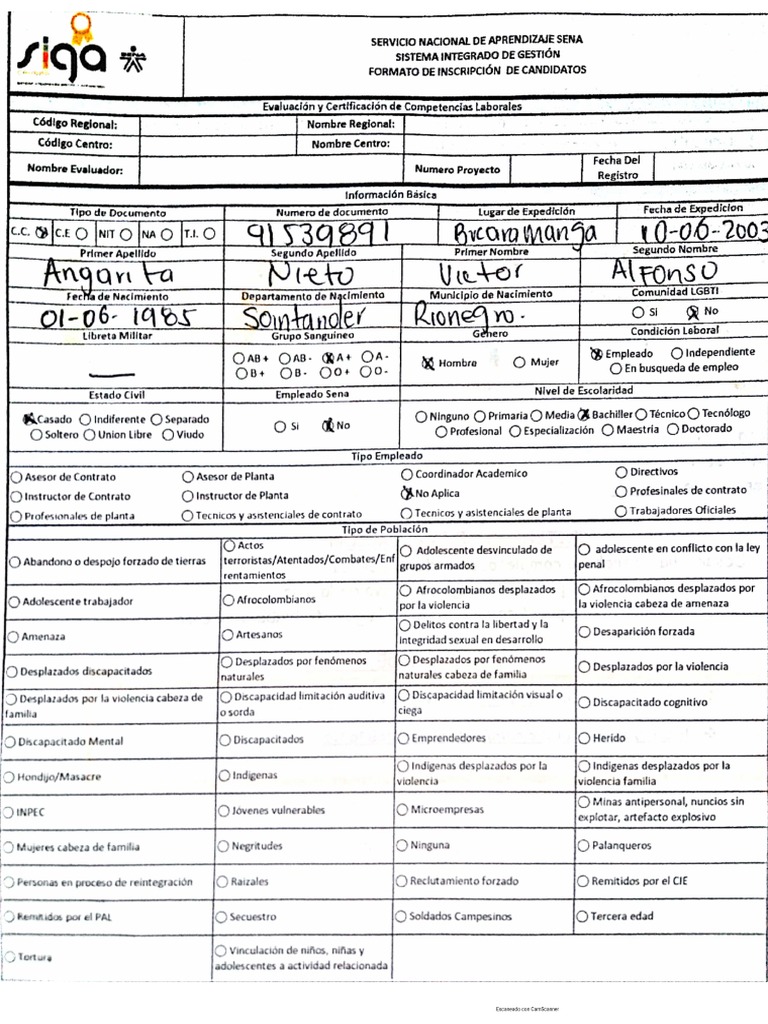 siga
SENA
SERVICIO NACIONAL DE APRENDIZAJE SENA
SISTEMA INTEGRADO DE GESTIÓN
FORMATO DE INSCRIPCIÓN DE CANDIDATOS
Evaluación y Certificación de Competencias Laborales
Código Regional: Nombre Regional:
Código Centro: Nombre Centro:
Nombre Evaluador: Numero Proyecto Fecha Del Registro
Información Básica
Tipo de Documento Numero de documento Lugar de Expedición Fecha de Expedicion
C.C. C.E NIT NA T.I. 91539891 Bucaramanga 10-06-2003
Primer Apellido Segundo Apellido Primer Nombre Segundo Nombre
Angarita Nieto Victor Alfonso
Fecha de Nacimiento Departamento de Nacimiento Municipio de Nacimiento Comunidad LGBTI
01-06-1985 Santander Rionegro. Si No
Libreta Militar Grupo Sanguineo Genero Condición Laboral
— AB+ AB- A+ A- Hombre Mujer Empleado Independiente
B+ B- O+ O- En busqueda de empleo
Estado Civil Empleado Sena Nivel de Escolaridad
Casado Indiferente Separado Si No Ninguno Primaria Media Bachiller Técnico Tecnólogo
Soltero Union Libre Viudo Profesional Especialización Maestria Doctorado
Tipo Empleado
Asesor de Contrato Asesor de Planta Coordinador Academico Directivos
Instructor de Contrato Instructor de Planta No Aplica Profesinales de contrato
Profesionales de planta Tecnicos y asistenciales de contrato Tecnicos y asistenciales de planta Trabajadores Oficiales
Tipo de Población
Abandono o despojo forzado de tierras Actos terroristas/Atentados/Combates/Enfrentamientos Adolescente desvinculado de grupos armados adolescente en conflicto con la ley penal
Adolescente trabajador Afrocolombianos Afrocolombianos desplazados por la violencia Afrocolombianos desplazados por la violencia cabeza de amenaza
Amenaza Artesanos Delitos contra la libertad y la integridad sexual en desarrollo Desaparición forzada
Desplazados discapacitados Desplazados por fenómenos naturales Desplazados por fenómenos naturales cabeza de familia Desplazados por la violencia
Desplazados por la violencia cabeza de familia Discapacidad limitación auditiva o sorda Discapacidad limitación visual o ciega Discapacitado cognitivo
Discapacitado Mental Discapacitados Emprendedores Herido
Hondijo/Masacre Indigenas Indigenas desplazados por la violencia Indigenas desplazados por la violencia familia
INPEC Jóvenes vulnerables Microempresas Minas antipersonal, nuncios sin explotar, artefacto explosivo
Mujeres cabeza de familia Negritudes Ninguna Palanqueros
Personas en proceso de reintegración Raizales Reclutamiento forzado Remitidos por el CIE
Remitidos por el PAL Secuestro Soldados Campesinos Tercera edad
Tortura Vinculación de niños, niñas y adolescentes a actividad relacionada
Escaneado con CamScanner